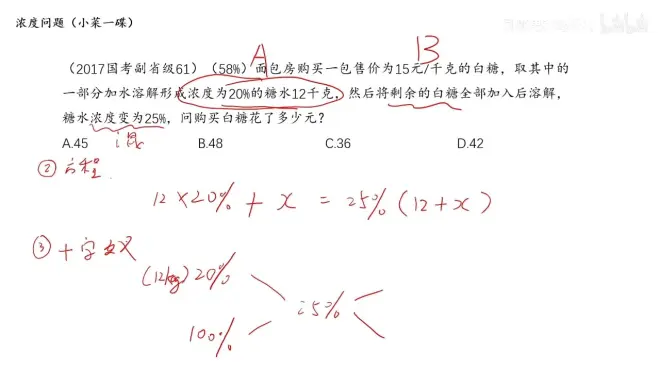 浓度问题（小菜一碟）
A B
（2017国考副省级61）（58%）面包房购买一包售价为15元/千克的白糖，取其中的
一部分加水溶解形成浓度为20%的糖水12千克，然后将剩余的白糖全部加入后溶解，
糖水浓度变为25%，问购买白糖花了多少元？
A.45 B.48 C.36 D.42
② 方程
12×20%+x=25%(12+x)
③ 十字交叉
(12kg)20%
25%
100%